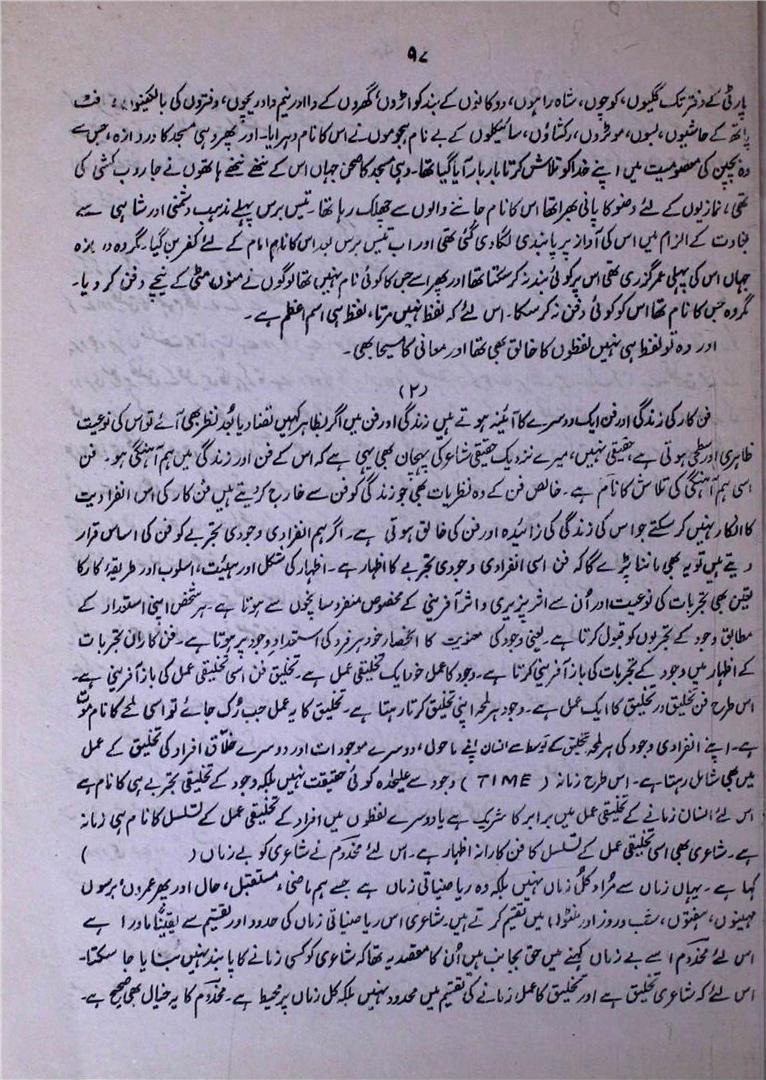 ۹۷
پارٹی کے دفتر تک گلیوں، کوچوں، شاہ راہوں، دوکانوں کے بند کواڑوں، گھروں کے وا اور نیم وا دریچوں، دفتروں کی بالکنیوں، فٹ
پاتھ کے حاشیوں، بسوں، موٹروں، رکشاؤں، سائیکلوں کے بے نام ہجوموں نے اس کا نام دہرایا۔ اور پھر وہی مسجد کا دروازہ، جس سے
وہ بچپن کی معصومیت میں اپنے خدا کو تلاش کرتا بار بار آیا گیا تھا۔ وہی مسجد کا صحن جہاں اس کے ننھے ننھے ہاتھوں نے جاروب کشی کی
تھی، نمازیوں کے لئے وضو کا پانی بھرا تھا اس کا نام جاننے والوں سے چھلک رہا تھا۔ تیس برس پہلے مذہب دشمنی اور شاہی سے
بغاوت کے الزام میں اس کی آواز پر پابندی لگا دی گئی تھی اور اب تیس برس بعد اس کا نام امام کے لئے کفر بن گیا۔ مگر وہ دروازہ
جہاں اس کی پہلی عمر گذری تھی اس پر کوئی بند نہ کر سکتا تھا اور پھر اسے جس کا کوئی نام نہیں تھا لوگوں نے منوں مٹی کے نیچے دفن کر دیا۔
مگر وہ جس کا نام تھا اس کو کوئی دفن نہ کر سکا۔ اس لئے کہ لفظ نہیں مرتا، لفظ ہی اسم اعظم ہے۔
اور وہ تو لفظ ہی نہیں لفظوں کا خالق بھی تھا اور معانی کا مسیحا بھی۔
(۲)
فن کار کی زندگی اور فن ایک دوسرے کا آئینہ ہوتے ہیں زندگی اور فن میں اگر بظاہر کہیں تضاد یا بُعد نظر بھی آئے تو اس کی نوعیت
ظاہری اور سطحی ہوتی ہے، حقیقی نہیں، میرے نزدیک حقیقی شاعر کی پہچان بھی یہی ہے کہ اس کے فن اور زندگی میں ہم آہنگی ہو۔ فن
اسی ہم آہنگی کی تلاش کا نام ہے۔ خالص فن کے وہ نظریات بھی جو زندگی کو فن سے خارج کر دیتے ہیں فن کار کی اس انفرادیت
کا انکار نہیں کر سکتے جو اس کی زندگی کی زائیدہ اور فن کی خالق ہوتی ہے۔ اگر ہم انفرادی وجودی تجربے کو فن کی اساس قرار
دیتے ہیں تو یہ بھی ماننا پڑے گا کہ فن اسی انفرادی وجودی تجربے کا اظہار ہے۔ اظہار کی شکل اور ہیئت، اسلوب اور طریقۂ کار کا
تعین بھی تجربات کی نوعیت اور اُن سے اثر پذیری و اثر آفرینی کے مخصوص منفرد سانچوں سے ہوتا ہے۔ ہر شخص اپنی استعداد کے
مطابق وجود کے تجربوں کو قبول کرتا ہے۔ یعنی وجود کی معنویت کا انحصار خود ہر فرد کی استعداد وجود پر ہوتا ہے۔ فن کار ان تجربات
کے اظہار میں وجود کے تجربات کی باز آفرینی کرتا ہے۔ وجود کا عمل خود ایک تخلیقی عمل ہے۔ تخلیق فن اسی تخلیقی عمل کی باز آفرینی ہے۔
اس طرح فن تخلیق در تخلیق کا ایک عمل ہے۔ وجود ہر لمحہ اپنی تخلیق کرتا رہتا ہے۔ تخلیق کا یہ عمل جب رُک جائے تو اسی لمحے کا نام موت
ہے۔ اپنے انفرادی وجود کی ہر لمحہ تخلیق کے توسط سے انسان اپنے ماحول، دوسرے موجودات اور دوسرے خلّاق افراد کی تخلیق کے عمل
میں بھی شامل رہتا ہے۔ اس طرح زمانہ (TIME) وجود سے علیٰحدہ کوئی حقیقت نہیں بلکہ وجود کے تخلیقی تجربے ہی کا نام ہے
اس لئے انسان زمانے کے تخلیقی عمل میں برابر کا شریک ہے یا دوسرے لفظوں میں افراد کے تخلیقی عمل کے تسلسل کا نام ہی زمانہ
ہے۔ شاعری بھی اسی تخلیقی عمل کے تسلسل کا فن کارانہ اظہار ہے۔ اس لئے مخدوم نے شاعری کو بے زماں (          )
کہا ہے۔ یہاں زماں سے مُراد کُل زماں نہیں بلکہ وہ ریاضیاتی زماں ہے جسے ہم ماضی، مستقبل، حال اور پھر عمروں، برسوں
مہینوں، ہفتوں، شب و روز اور لمحوں میں تقسیم کرتے ہیں۔ شاعری اس ریاضیاتی زماں کی حدود اور تقسیم سے یقیناً ماورا ہے
اس لئے مخدوم اسے بے زماں کہنے میں حق بجانب ہیں اُن کا مقصد یہ تھا کہ شاعری کو کسی زمانے کا پابند نہیں بنایا جا سکتا۔
اس لئے کہ شاعری تخلیق ہے اور تخلیق کا عمل زمانے کی تقسیم میں محدود نہیں بلکہ کل زماں پر محیط ہے۔ مخدوم کا یہ خیال بھی صحیح ہے۔